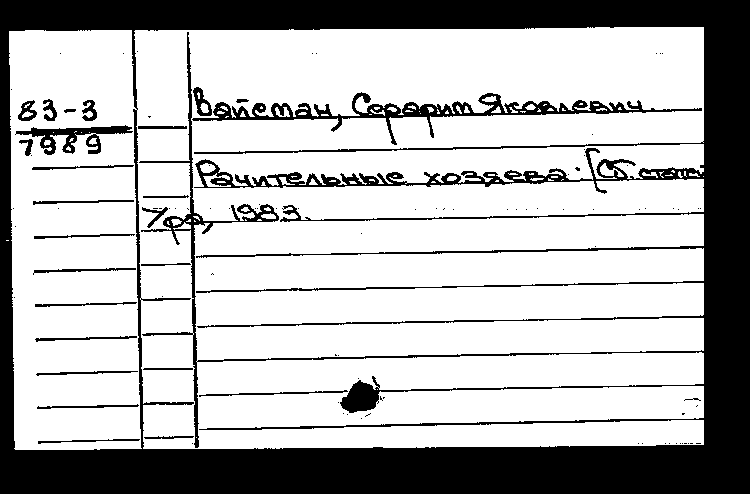 83-3
7989
Вайсман, Серафим Яковлевич.
Рачительные хозяева. [Сб. статей
Уфа, 1983.